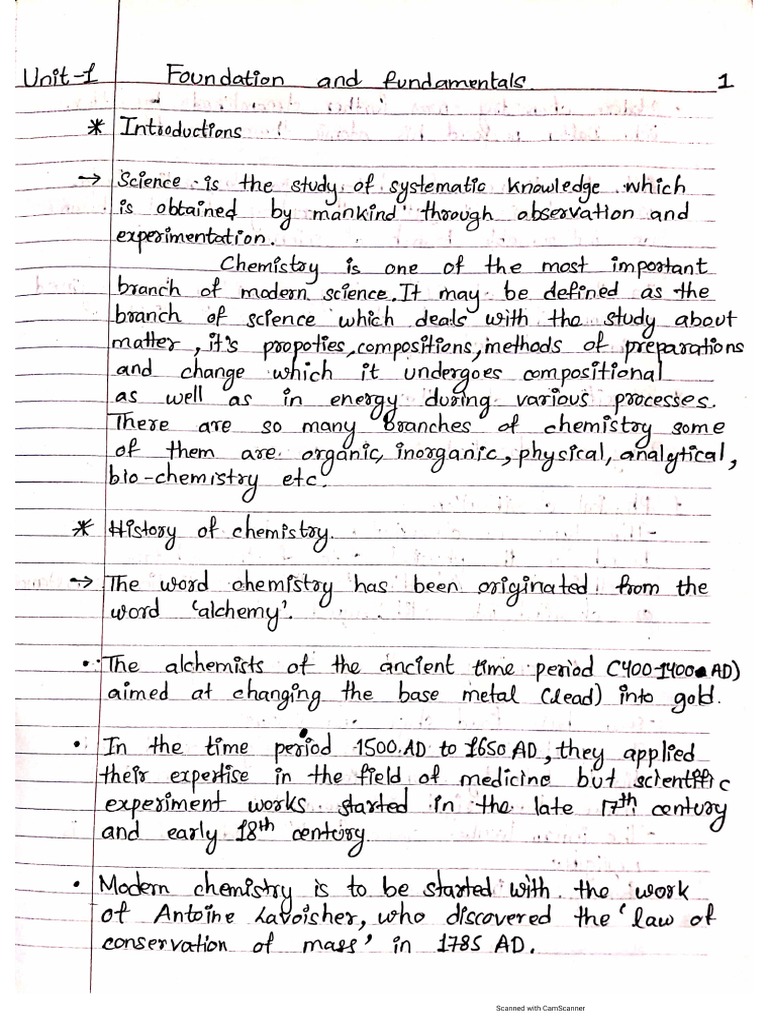 Unit-1 Foundation and fundamentals. 1
* Introductions
→ Science is the study of systematic knowledge which
is obtained by mankind through observation and
experimentation.
Chemistry is one of the most important
branch of modern science. It may be defined as the
branch of science which deals with the study about
matter, it's propoties, compositions, methods of preparations
and change which it undergoes compositional
as well as in energy during various processes.
There are so many branches of chemistry some
of them are organic, inorganic, physical, analytical,
bio-chemistry etc.
* History of chemistry.
→ The word chemistry has been originated from the
word 'alchemy'.
• The alchemists of the ancient time period (400-1400 AD)
aimed at changing the base metal (lead) into gold.
• In the time period 1500 AD to 1650 AD, they applied
their expertise in the field of medicine but scientific
experiment works started in the late 17th century
and early 18th century.
• Modern chemistry is to be started with the work
of Antoine Lavoisher, who discovered the 'law of
conservation of mass' in 1785 AD.
Scanned with CamScanner